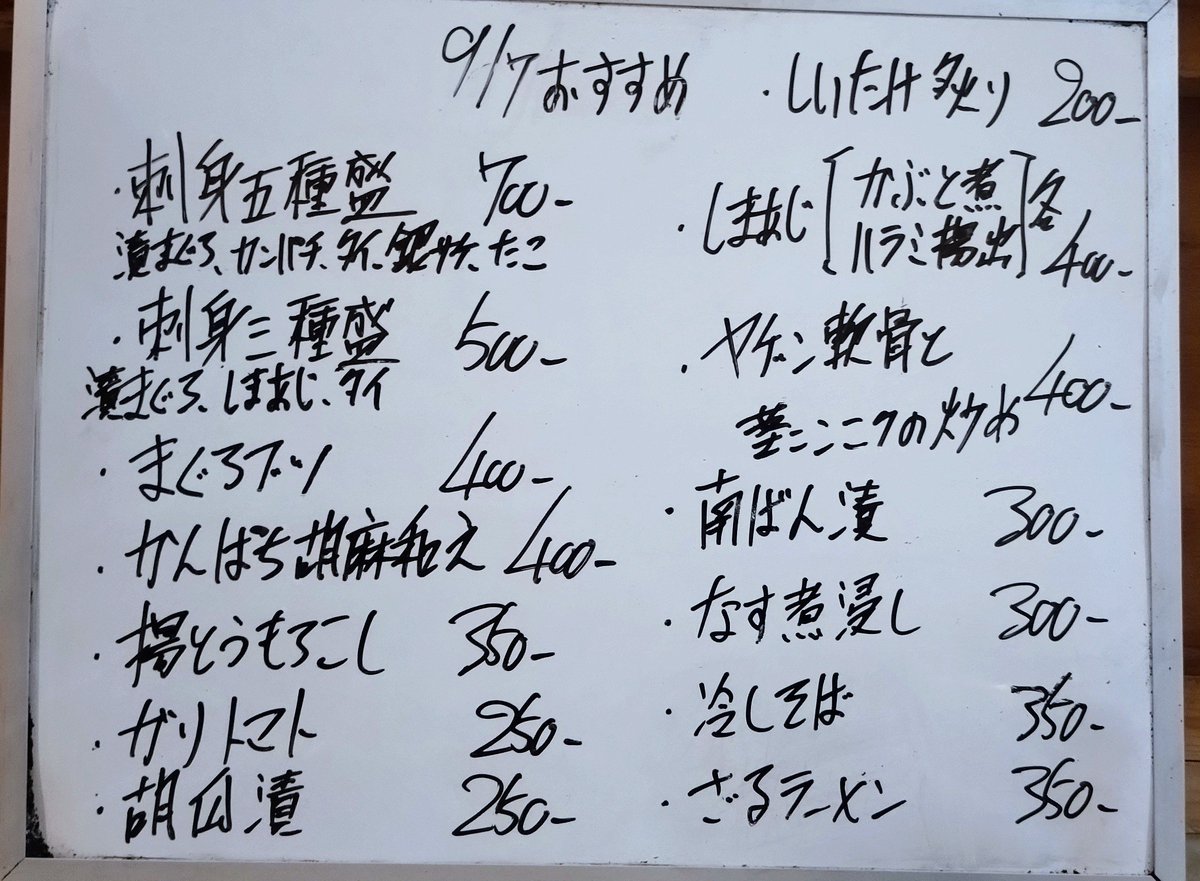 9/7 おすすめ
・刺身五種盛 700-
漬まぐろ、カンパチ、タイ、銀サケ、たこ
・刺身三種盛 500-
漬まぐろ、しまあじ、タイ
・まぐろブツ 400-
・かんぱち胡麻和え 400-
・揚とうもろこし 350-
・ガリトマト 250-
・胡瓜漬 250-
・しいたけ炙り 200-
・しまあじ[かぶと煮
ハラミ揚出]各400-
・ヤゲン軟骨と
茎ニンニクの炒め 400-
・南ばん漬 300-
・なす煮浸し 300-
・冷しそば 350-
・ざるラーメン 350-